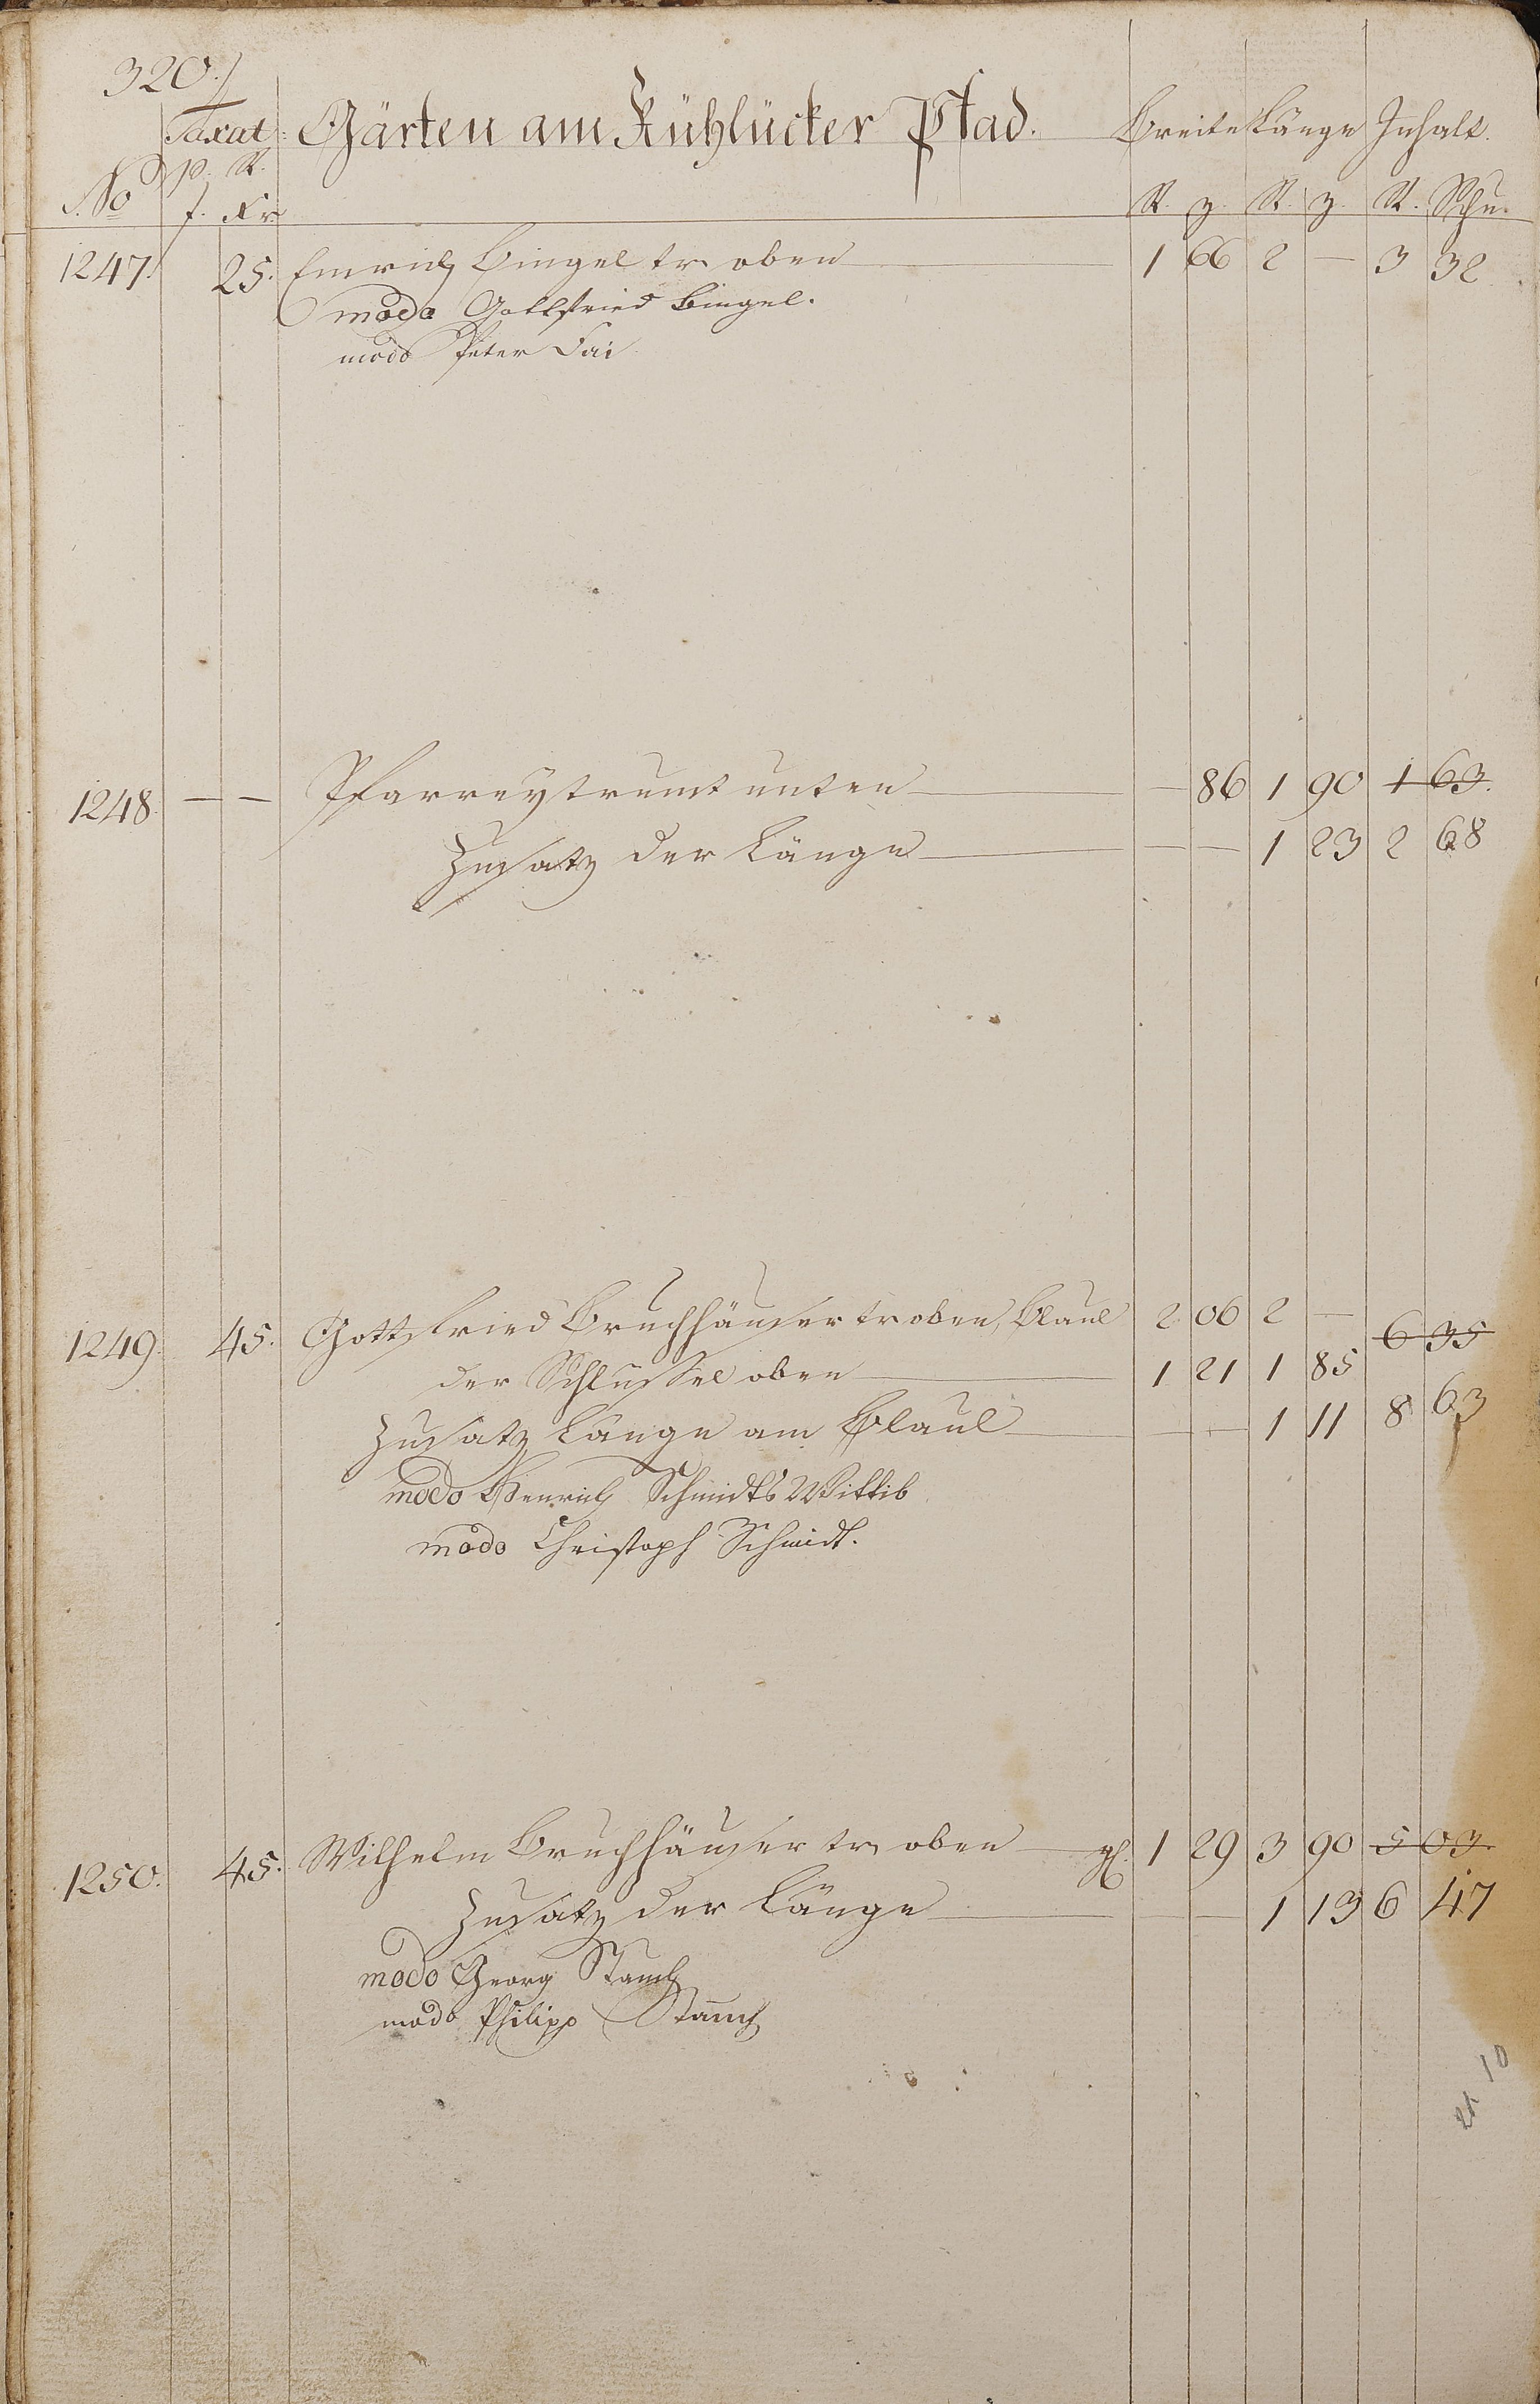 320.
Taxat: Gärten am Kühlücker Pfad. Breite Länge Inhalt.
p. R.
No f. Xr. R. z. R. z. R. Schu.
1247. 25. Emrich Bingel tr. oben 1 66 2 — 3 32
modo Gottfried Bingel.
modo Peter
1248. — — Pfarrey trumt unten — 86 1 90 1 63.
Zusatz der Länge — — 1 23 2 68
1249. 45. Gottfried Bruchhäuser tr oben, Blaul 2 06 2 — 6 35
der Schlüssel oben 1 21 1 85
Zusatz Länge am Blaul — — 1 11 8 63
modo Henrich Schmidts Wittib
modo Christoph Schmidt.
1250. 45. Wilhelm Bruchhäuser tr. oben 1 29 3 90 5 03.
Zusatz der Länge — — 1 13 6 47
modo Georg Stauch
modo Philipp Stauch
10
21